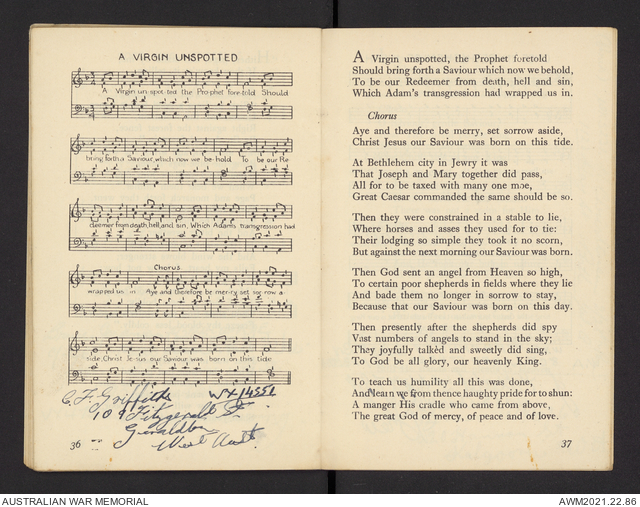 A VIRGIN UNSPOTTED
A Virgin un-spot-ted the Pro-phet fore-told Should
bring forth a Saviour which now we be-hold To be our Re-
deemer from death, hell, and sin, Which Adam's transgression had
Chorus
wrapped us in Aye and therefore be mer-ry set sor-row a
side, Christ Je-sus our Saviour was born on this tide
C. F. Griffiths WX14551
109 Fitzgerald St.
Geraldton
West Aust.
36
A Virgin unspotted, the Prophet foretold
Should bring forth a Saviour which now we behold,
To be our Redeemer from death, hell and sin,
Which Adam's transgression had wrapped us in.
Chorus
Aye and therefore be merry, set sorrow aside,
Christ Jesus our Saviour was born on this tide.
At Bethlehem city in Jewry it was
That Joseph and Mary together did pass,
All for to be taxed with many one moe,
Great Caesar commanded the same should be so.
Then they were constrained in a stable to lie,
Where horses and asses they used for to tie:
Their lodging so simple they took it no scorn,
But against the next morning our Saviour was born.
Then God sent an angel from Heaven so high,
To certain poor shepherds in fields where they lie
And bade them no longer in sorrow to stay,
Because that our Saviour was born on this day.
Then presently after the shepherds did spy
Vast numbers of angels to stand in the sky;
They joyfully talkèd and sweetly did sing,
To God be all glory, our heavenly King.
To teach us humility all this was done,
And learn we from thence haughty pride for to shun:
A manger His cradle who came from above,
The great God of mercy, of peace and of love.
37
AUSTRALIAN WAR MEMORIAL
AWM2021.22.86